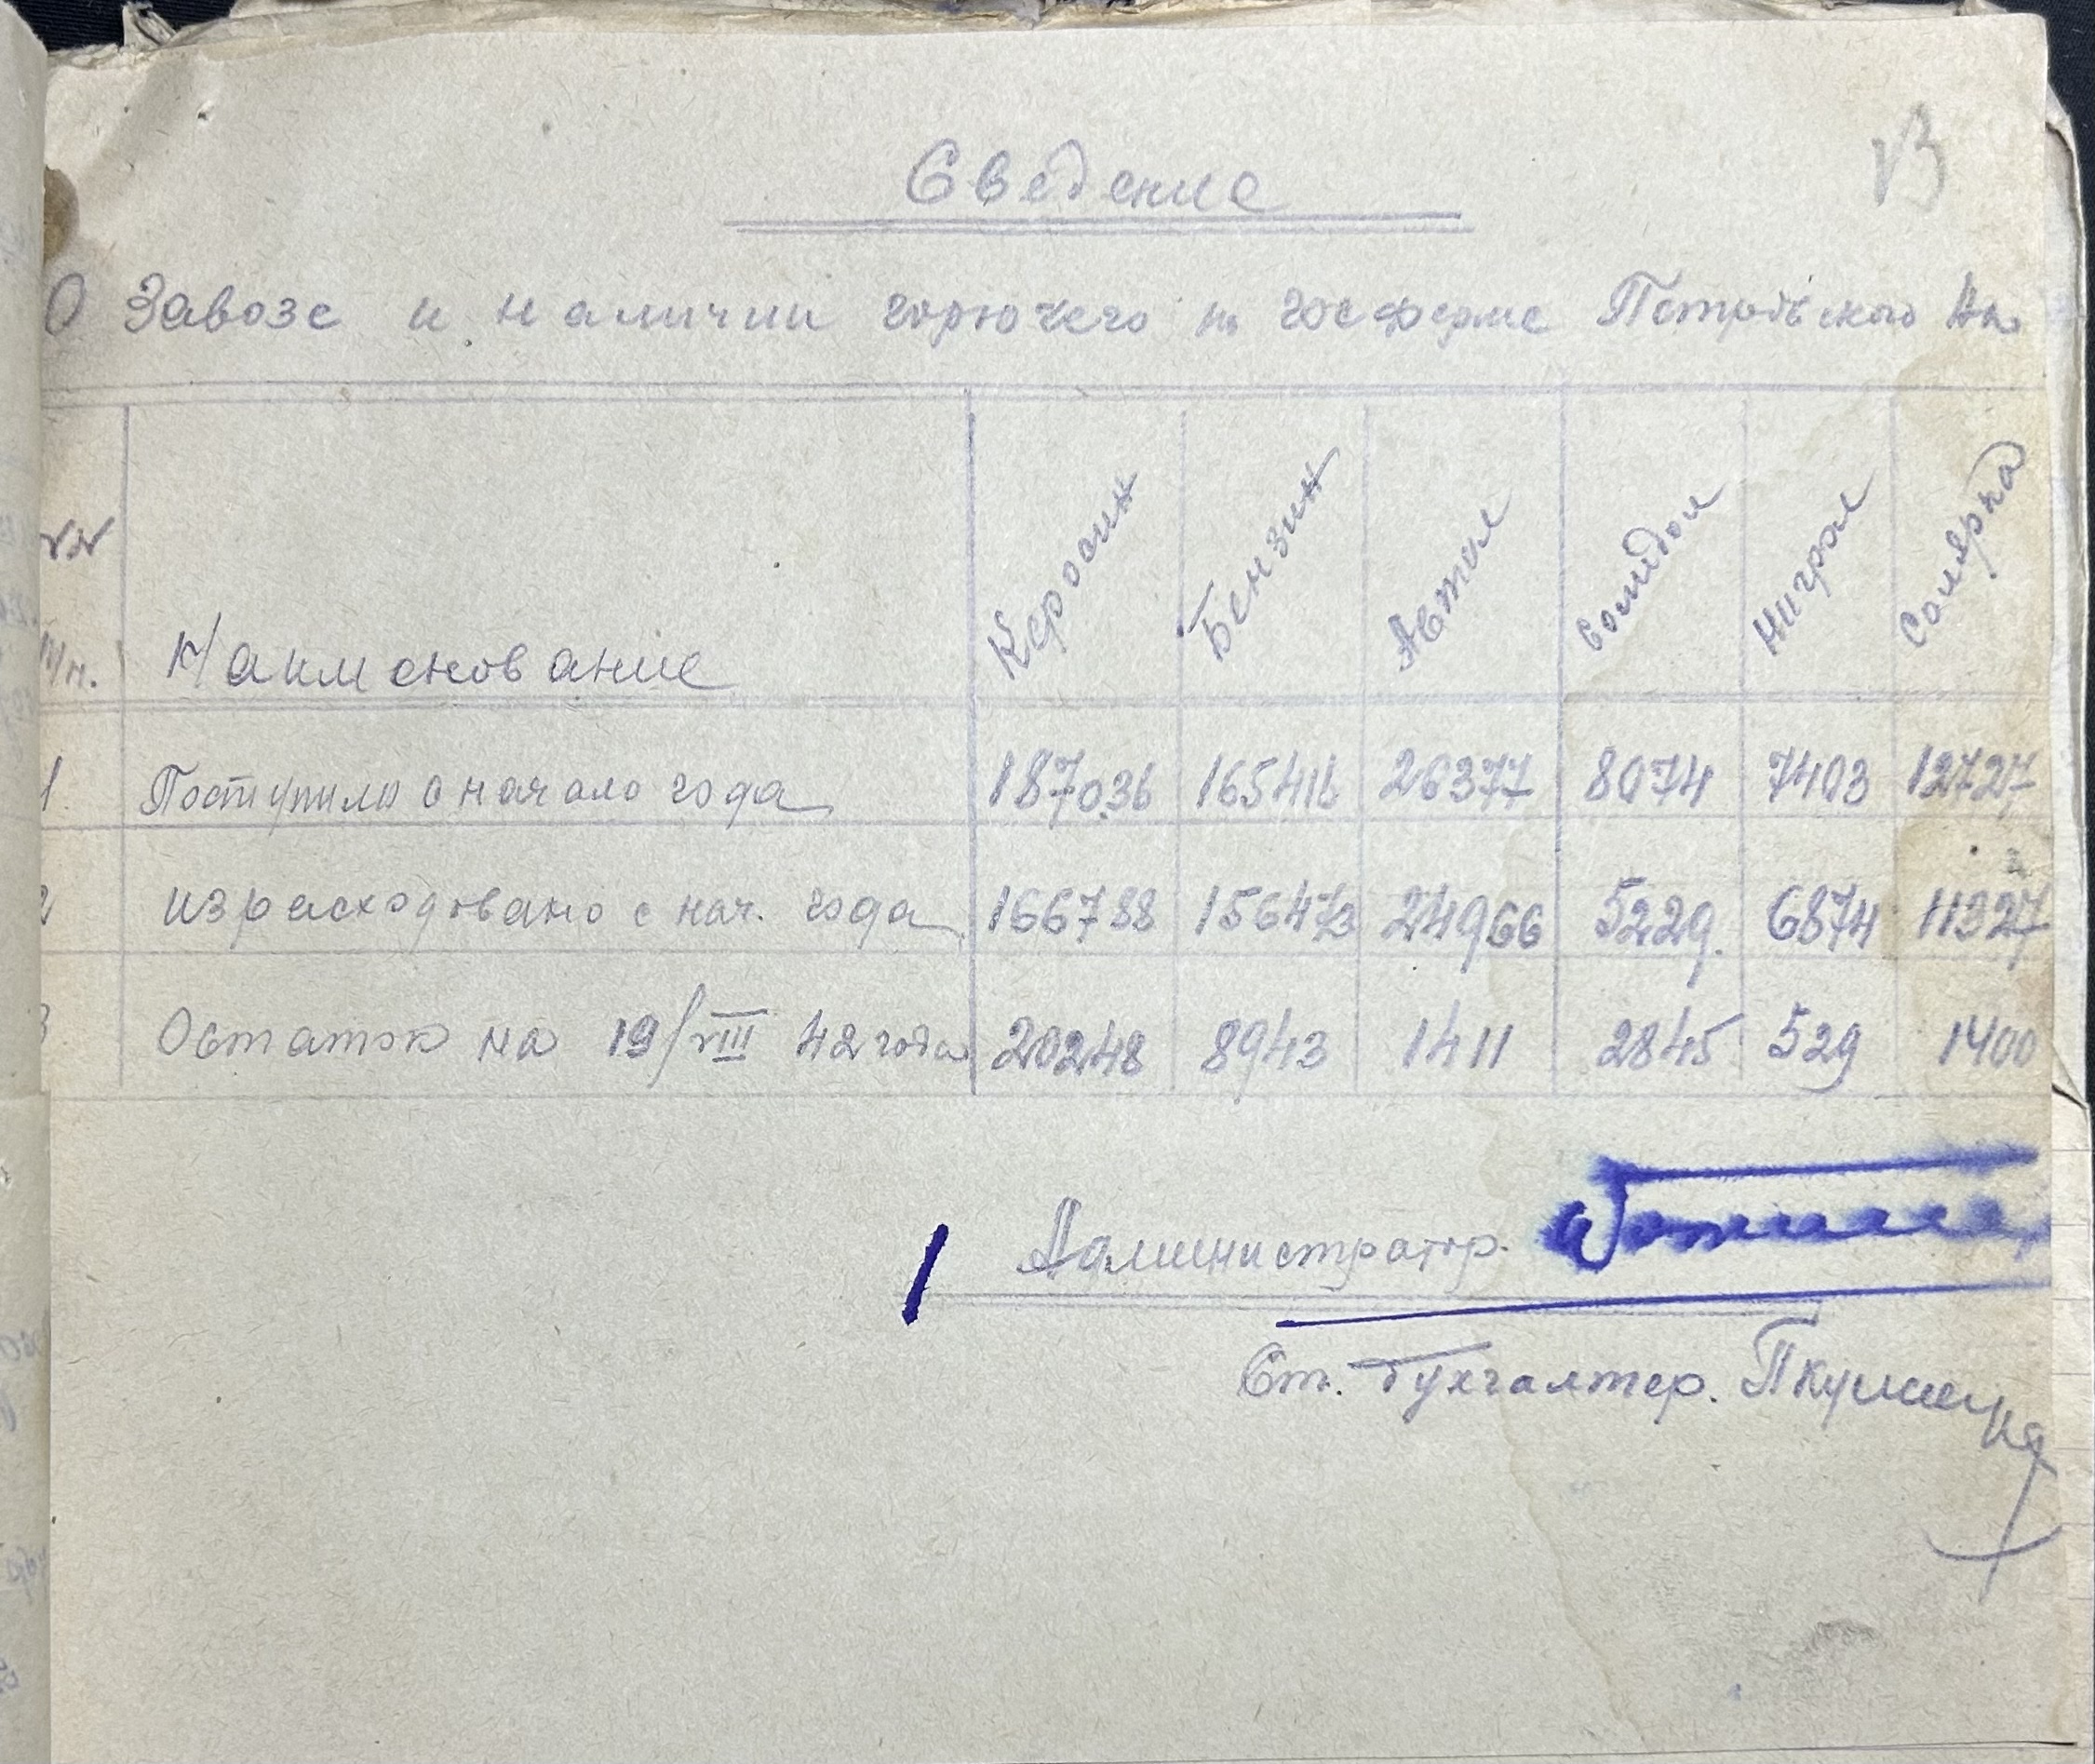 13
Сведение
О завозе и наличии горючего по госферме Петровского
п/н. Наименование Керосин Бензин Автол Солидол Нигрол Солярка
1 Поступило с начало года 187036 165416 26377 8074 7403 12727
2 израсходовано с нач. года 166788 156473 24966 5229. 6874 11327
3 Остаток на 19/VIII 42 года 20248 8943 1411 2845 529 1400
Администратор.
Ст. бухгалтер.